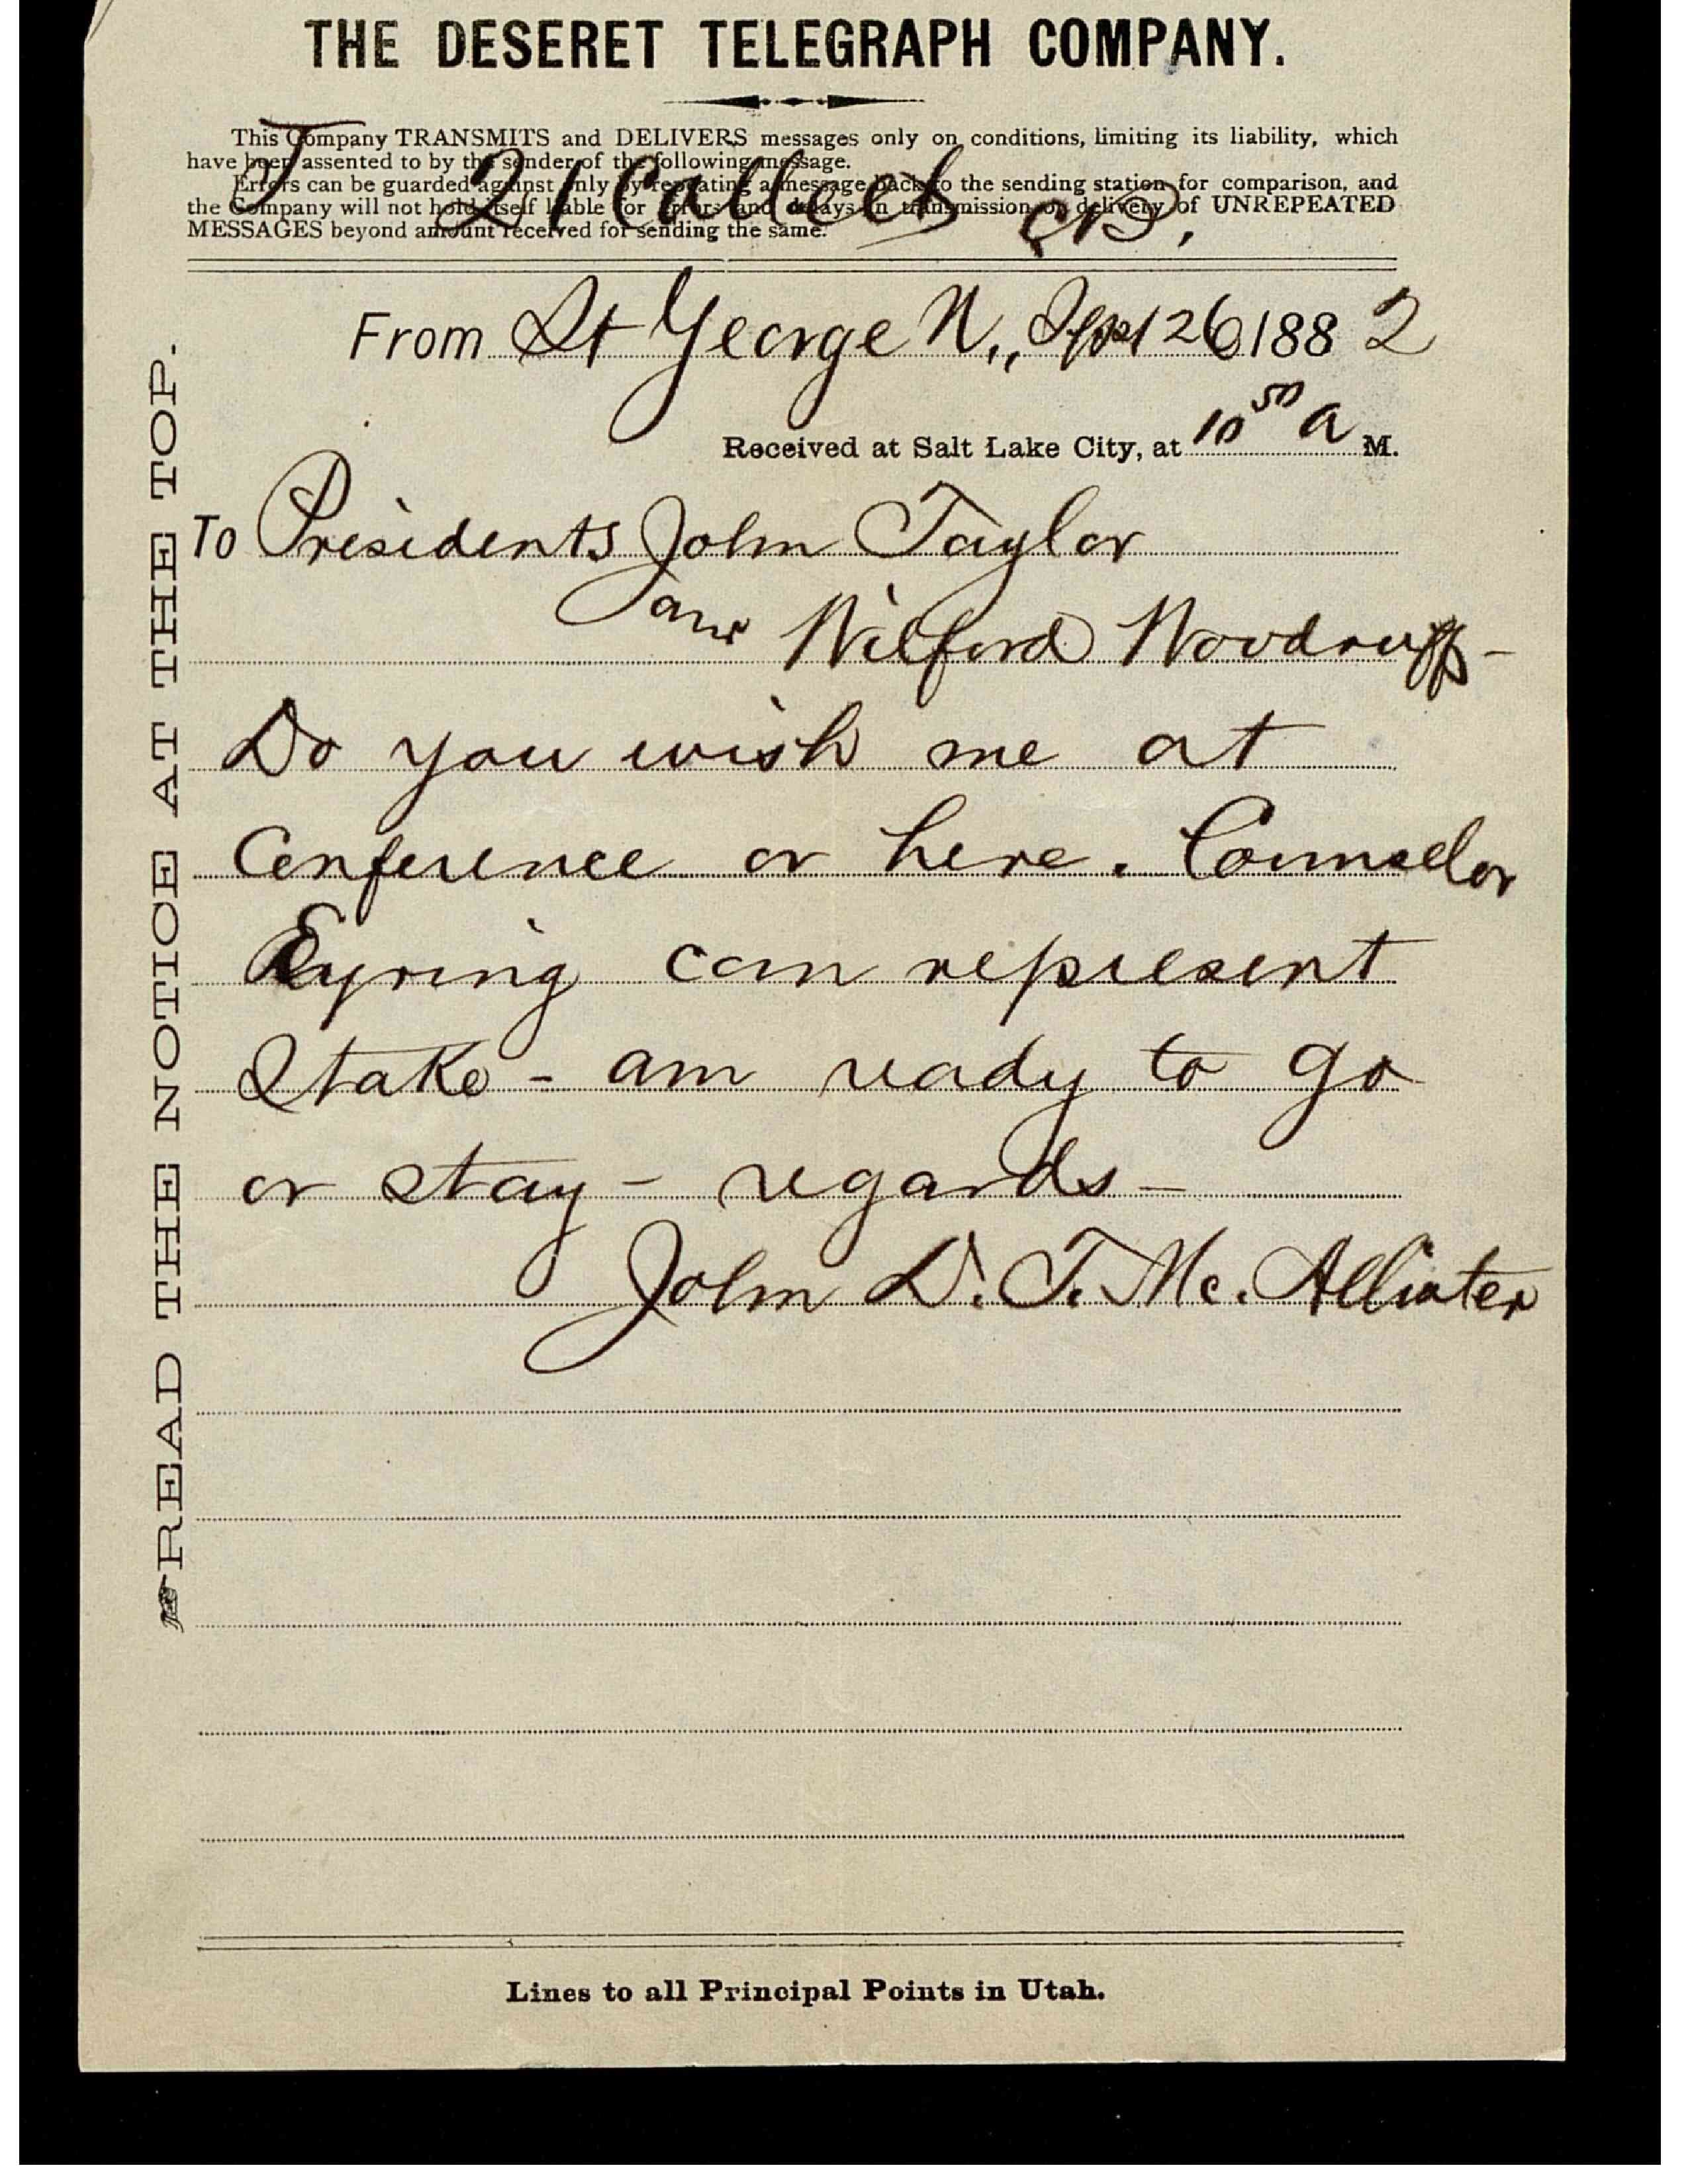 THE DESERET TELEGRAPH COMPANY.
This Company TRANSMITS and DELIVERS messages only on conditions, limiting its liability, which
have been assented to by the sender of the following message.
Errors can be guarded against only by repeating a message back to the sending station for comparison, and
the Company will not hold itself liable for errors and delays in transmission or delivery of UNREPEATED
MESSAGES beyond amount received for sending the same.
21 Collect
From St George U., Sept 26 1882
Received at Salt Lake City, at 10 50 a M.
To Presidents John Taylor
and Wilford Woodruff-
Do you wish me at
Conference or here. Counselor
Eyring can represent
Stake - am ready to go
or stay - regards -
John D. T. Mc. Allister
READ THE NOTICE AT THE TOP.
Lines to all Principal Points in Utah.